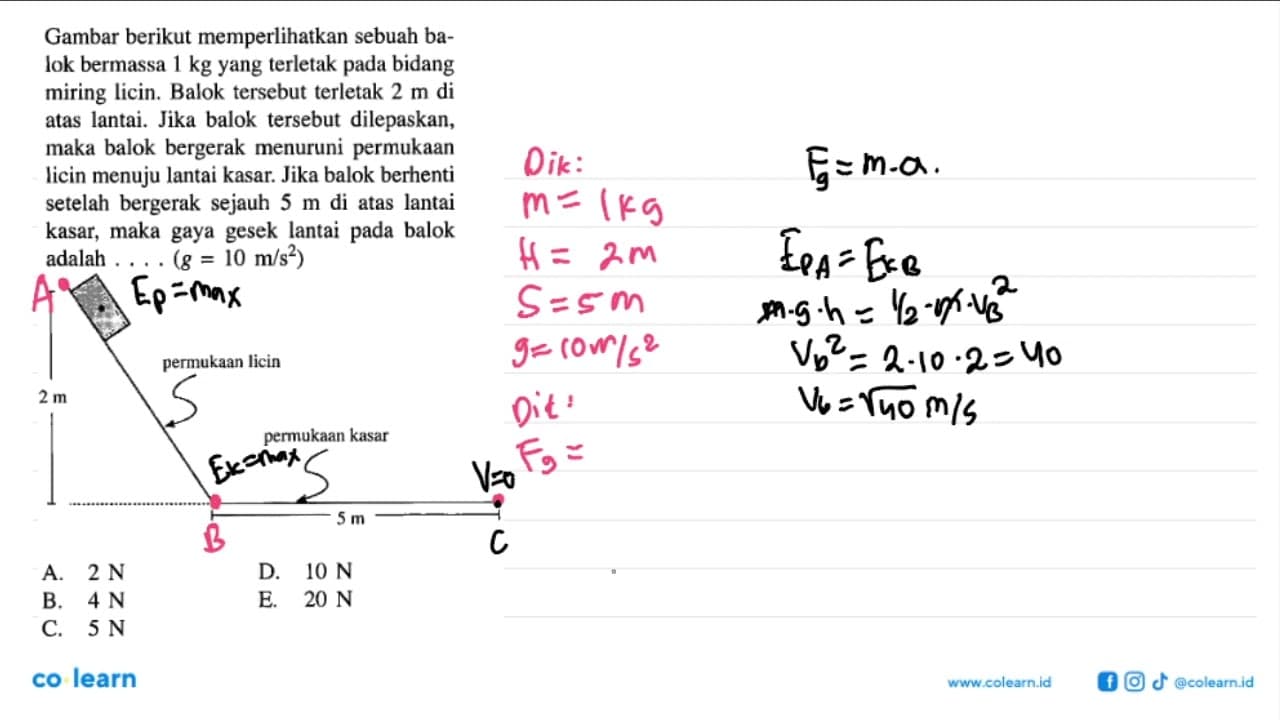 Gambar berikut memperlihatkan sebuah ba-
lok bermassa 1 kg yang terletak pada bidang
miring licin. Balok tersebut terletak 2 m di
atas lantai. Jika balok tersebut dilepaskan,
maka balok bergerak menuruni permukaan
licin menuju lantai kasar. Jika balok berhenti
setelah bergerak sejauh 5 m di atas lantai
kasar, maka gaya gesek lantai pada balok
adalah . . . . (g = 10 m/s²)
A
Ep = max
permukaan licin
2 m
permukaan kasar
Ek = max
V=0
5 m
B
C
A. 2 N
B. 4 N
C. 5 N
D. 10 N
E. 20 N
Dik:
m = 1 kg
H = 2 m
S = 5 m
g = 10 m/s²
Dit:
Fg =
Fg = m.a.
EpA = EkB
m.g.h = 1/2.m.VB²
Vb² = 2.10.2 = 40
Vb = √40 m/s
co learn
www.colearn.id
@colearn.id